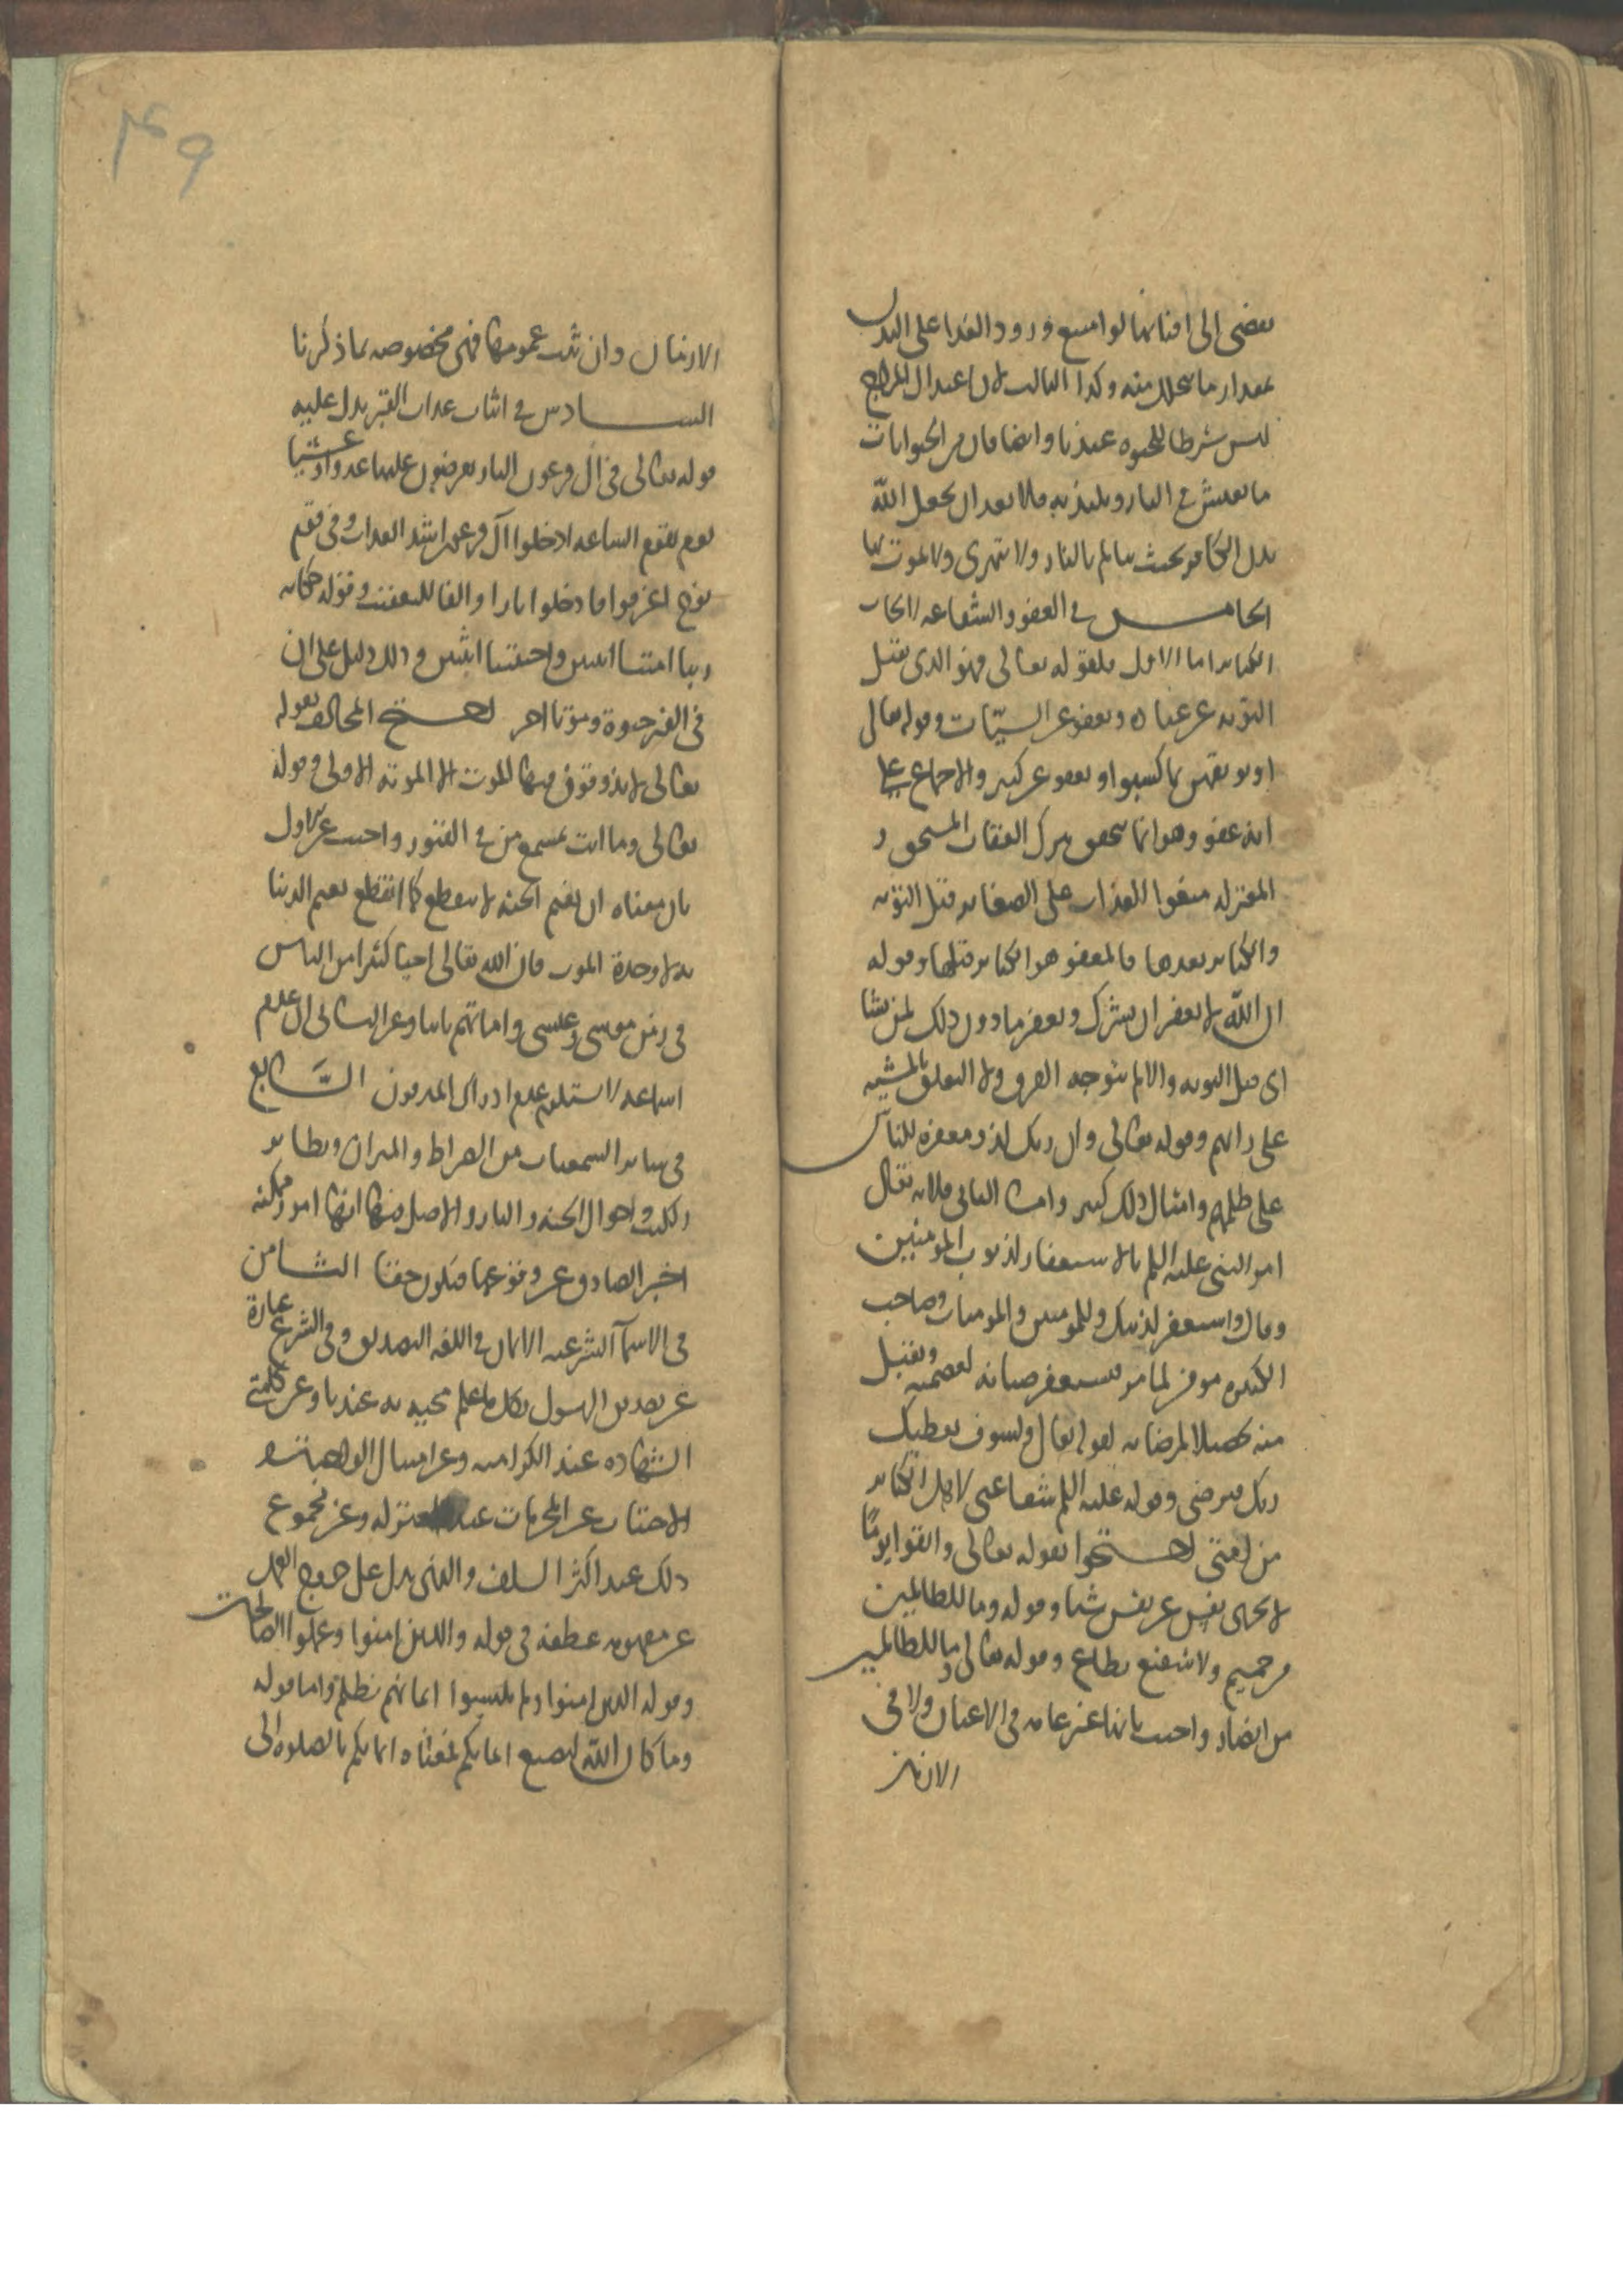 يفضي الى افنائها لو امتنع ورود الغذا على البدن
بمقدار ما يتحلل منه وكذا الثالث لان اعتدال المزاج
ليس شرطا للحيوة عندنا وايضا فان من الحيوانات
ما يعيش في النار ويلتذ به فلا يبعد ان يجعل الله
بدن الكافر بحيث يتالم بالنار ولا يتهرى ولا يموت بها
الخامس في العفو والشفاعة لاصحاب
الكبائر اما الاول فلقوله تعالى وهو الذي يقبل
التوبه عن عباده ويعفو عن السيّات وقوله تعالى
او يوبقهن بما كسبوا ويعفو عن كثير والاجماع على
انه عفو وهو انما يتحقق بترك العقاب المستحق و
المعتزله منعوا العذاب على الصغائر قبل التوبه
والكبائر بعدها فالمعفو هو الكبائر قبلها وقوله
ان الله لا يغفر ان يشرك به ويغفر ما دون ذلك لمن يشا
اى قبل التوبه والا لم يتوجه الفرق ولا التعليق بالمشيه
على رايهم وقوله تعالى وان ربك لذو مغفره للناس
على ظلمهم وامثال ذلك كثير واما الثاني فلانه تعالى
امر النبي عليه السلم بالاستغفار لذنوب المومنين
وقال واستغفر لذنبك وللمومنين والمومنات وصاحب
الكبيره مومن لما مر فيستغفر صيانه لعصمته ويقبل
منه تحصيلا لمرضاته لقوله تعالى ولسوف يعطيك
ربك فترضى وقوله عليه السلم شفاعتى لاهل الكبائر
من امتى احتجوا بقوله تعالى واتقوا يومًا
لا تجزى نفس عن نفس شيا وقوله وما للظالمين
من حميم ولا شفيع يطاع وقوله تعالى وما للظالمين
من انصار واجيب بانها غير عامه في الاعيان ولا في
الازمان
٤٩
الازمان وان ثبت عمومها فهى مخصوصه بما ذكرنا
السادس في اثبات عذاب القبر يدل عليه
قوله تعالى في آل فرعون النار يعرضون عليها غدوا وعشيا
ويوم تقوم الساعه ادخلوا آل فرعون اشد العذاب وفي قوم
نوح اغرقوا فادخلوا نارا والفا للتعقيب وقوله حكايه
ربنا امتنا اثنتين واحييتنا اثنتين وذلك دليل على ان
في القبر حيوة وموتا اخر احتج المخالف بقوله
تعالى لا يذوقون فيها الموت الا الموته الاولى وقوله
تعالى وما انت بمسمع من في القبور واجيب عن الاول
بان معناه ان نعيم الجنه لا ينقطع كما انقطع نعيم الدنيا
به لا وحدة الموت فان الله تعالى احيا كثيرا من الناس
في زمن موسى وعيسى واماتهم ثانيا وعن الثاني ان عدم
اسماعه لا يستلزم عدم ادراك المدفون السّابع
في سائر السمعيات من الصراط والميزان وتطاير
الكتب واحوال الجنه والنار والاصل فيها انها امور ممكنه
اخبر الصادق عن وقوعها فتكون حقا الثامن
في الاسمآ الشرعيه الايمان في اللغه التصديق وفي الشرع عبارة
عن تصديق الرسول بكل ما علم مجيه به عندنا وعن كلمتى
الشهاده عند الكراميه وعن امتثال الواجبات و
الاجتناب عن المحرمات عند المعتزله وعن مجموع
ذلك عند اكثر السلف والذي يدل على خروج العمل
عن مفهومه عطفه في قوله والذين امنوا وعملوا الصالحات
وقوله الذين امنوا ولم يلبسوا ايمانهم بظلم واما قوله
وما كان الله ليضيع ايمانكم فمعناه ايمانكم بالصلوة الى